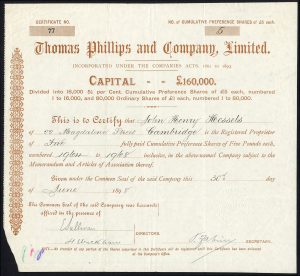 CERTIFICATE NO.
77
NO. OF CUMULATIVE PREFERENCE SHARES OF £5 EACH.
5
Thomas Phillips and Company, Limited.
INCORPORATED UNDER THE COMPANIES ACTS, 1862 TO 1893
CAPITAL - - £160,000.
Divided into 16,000 5½ per Cent. Cumulative Preference Shares of £5 each, numbered
1 to 16,000, and 80,000 Ordinary Shares of £1 each, numbered 1 to 80,000.
This is to Certify that John Henry Hessels
of Magdalene Street Cambridge is the Registered Proprietor
of Five fully paid Cumulative Preference Shares of Five Pounds each,
numbered to 1968 inclusive, in the above-named Company subject to the
Memorandum and Articles of Association thereof.
Given under the Common Seal of the said Company this 30th day
of June 189
The Common Seal of the said Company was hereunto
affixed in the presence of
DIRECTORS.
SECRETARY.